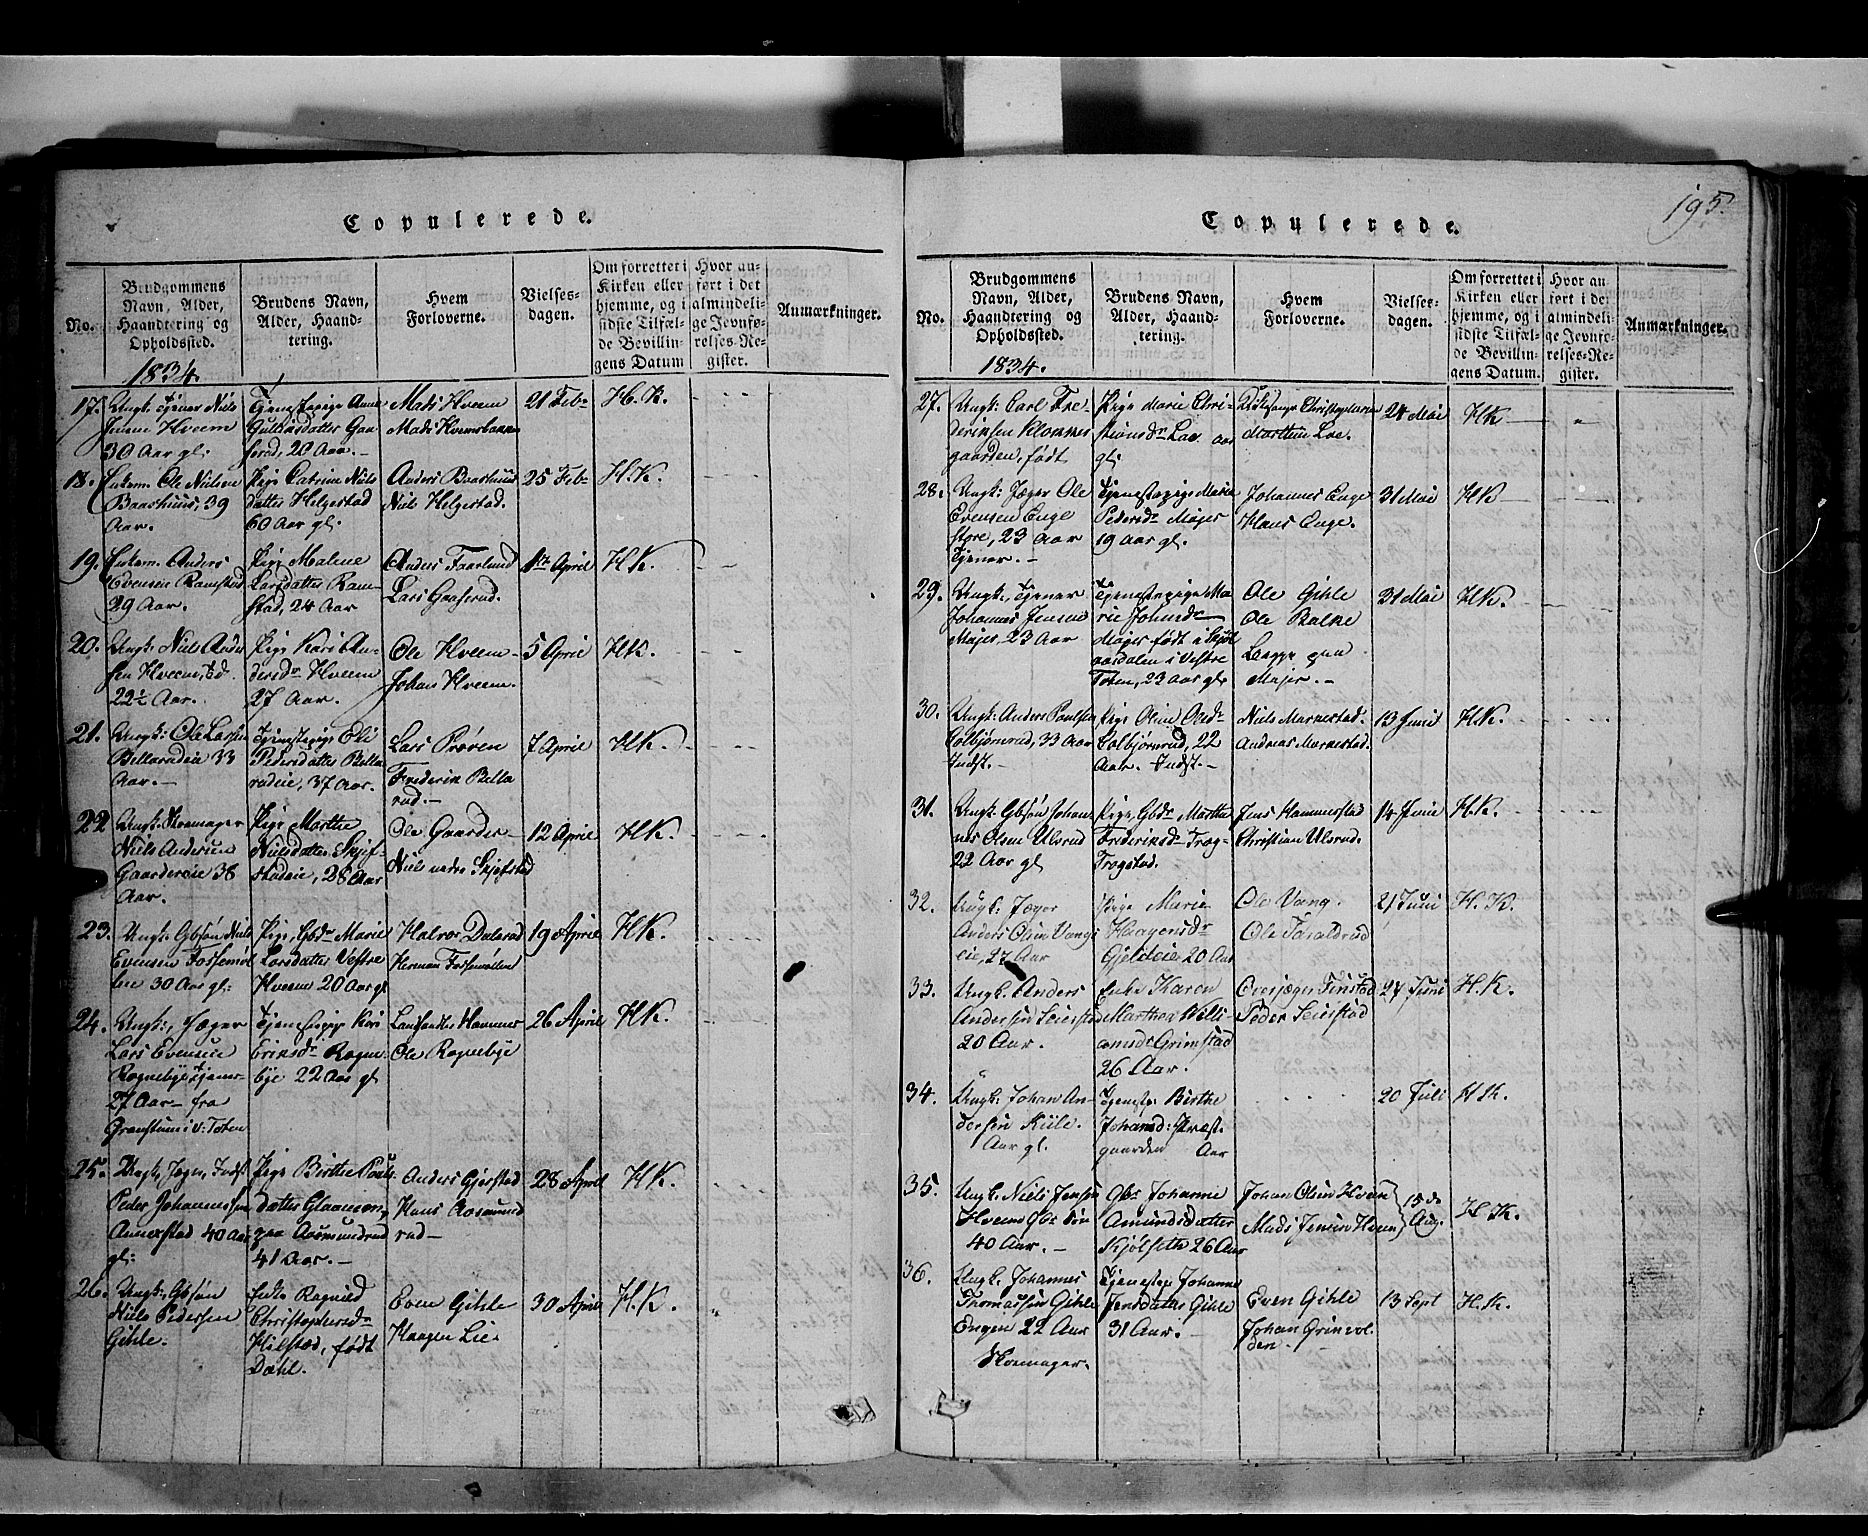 195.
Copulerede.
No.
Brudgommens
Navn, Alder,
Haandtering og
Opholdssted.
Brudens Navn,
Alder, Haand-
tering.
Hvem
Forloverne.
Vielses-
dagen.
Om forrettet i
Kirken eller
hjemme, og i
sidste Tilfæl-
de Bevillin-
gens Datum
Hvor an-
ført i det
almindeli-
ge Jevnfø-
relses-Re-
gister.
Anmærkninger.
1834.
17. Ungk: Tjener Niels
Jensen Hveem
30 Aar gl:
Tjenestepige Anne
Gulbrisdatter Gaa-
serud, 20 Aar.-
Mads Hveem
Mads Hveem
21 Feb
H.K.
18. Enkem. Ole Nielsen
Baashuus, 39
Aar.
Pige Catrine Niels
datter Helgestad
60 Aar gl:
Anders Baashuus
Niels Helgestad.
25 Feb
H.K.
19. Enkem. Anders
Evensen Ramstad
29 Aar.
Pige Malene
Larsdatter Ram-
stad, 24 Aar
Anders Faarlund
Lars Gaaserud.
1te April
H.K.
20. Ungk: Niels Ander
sen Hveem,
22½ Aar.
Pige Kari An-
dersdr Hveem
27 Aar.
Ole Hveem
Johan Hveem.
5 April
H.K.
21. Ungk: Ole Larsen
Bellerudeie 33
Aar.-
Tjenestepige Eli
Pedersdatter Bella
rudeie, 37 Aar.
Lars Prøven
Frederik Bella
rud.-
7 April
H.K.
22 Ungk: Skomager
Niels Andersen
Gaardereie 38
Aar.
Pige Marthe
Nielsdatter Skjef-
stadeie, 28 Aar
Ole Gaarder
Niels nedre Skjefstad
12 April
H.K.
23. Ungk: Gbsøn Niels
Evensen Fossemøl
len 30 Aar gl:
Pige, Gbdr Marie
Larsdatter Vestre
Hveem 20 Aar gl
Halvor Dalerud
Herman Fossemøllen
19 April
H.K.
24. Ungk:, Jæger
Lars Evensen
Rognebye Tjener
27 Aar fra
Grønstuen i V: Toten
Tjenestepige Kari
Eriksdr Rogne-
bye 22 Aar gl
Hammer
Ole Rognebye
26 April
H.K.
25. Ungk, Jæger, Indst
Peder Johannessen
Annexstad 40 Aar
gl:
Pige Birthe Pouls
datter Glaamen,
paa Aasmundrud
41 Aar.-
Anders Gjerstad
Hans Aasmund
rud-
28 April
H.K.
26. Ungk: Gbsøn
Niels Pedersen
Gihle.
Enke Ragnild
Christophersdr
Hilstad, født
Dahl.
Even Gihle
Haagen Lie.
30 April
H.K.
Copulerede.
No.
Brudgommens
Navn, Alder,
Haandtering og
Opholdssted.
Brudens Navn,
Alder, Haand-
tering.
Hvem
Forloverne.
Vielses-
dagen.
Om forrettet i
Kirken eller
hjemme, og i
sidste Tilfæl-
de Bevillin-
gens Datum.
Hvor an
ført i det
almindeli-
ge Jevnfø-
relses-Re-
gister.
Anmærkninger.
1834.
27. Ungk: Carl Fre-
deriksen Klommes
gaarden, født
Pige Marie Chri-
stiansdr Lae aar
gl:
Kirkesanger Christophersen
Marthin Loe.
24 Mai
H.K
28. Ungk: Jæger Ole
Evensen Enge
store, 23 Aar
Tjener.-
Tjenestepige Marie
Pedersdr Majer
19 aar gl.
Johannes Enge
Hans Enge.
31 Mai
H.K
29. Ungk:, Tjener
Johannes Jensen
Majer, 23 Aar
Tjenestepige Ma-
rie Johnsdr
Majer født i
aasdalen i Vestre
Toten, 23 aar gl
Ole Gihle
Ole Balke
Begge paa
Majer.-
31 Mai
H.K.
30. Ungk: Anders Poulsen
Colbjørnrud, 33 Aar
Indst.-
Pige Oline Olsdr
Colbjørnrud, 22
Aar. Indst.-
Niels Marnestad.
Andreas Marnestad.
13 Junii
H.K.
31. Ungk: Gbsøn Johan
nes Olsen Ulsrud
22 Aar gl
Pige, Gbdr Marthe
Frederiksdr Trog-
Trogstad.
Jens Hammerstad
Christian Ulsrud.
14 Junii
H.K.
32. Ungk: Jæger
Anders Olsen Vangs
eie, 27 Aar
Pige Marie
Haagensdr
Gjeldseie 20 Aar
Ole Vang.
Ole Taraldrud
21 Juni
H.K.
33. Ungk. Anders
Andersen Seierstad
20 Aar.
Enke Karen
Marthea Willi
amsdr Grimstad
26 Aar.
Overjæger Finstad
Peder Seierstad
27 Juni
H.K.
34. Ungk: Johan An-
dersen Kiile.
Aar gl.
Tjenestp: Birthe
Johansd: Præst-
gaarden Aar
20 Juli
H.K.
35. Ungk. Niels Jensen
Hveem Gbr søn
40 Aar.-
Gbr Johanne
Amundsdatter
Kjølseth 26 Aar
Johan Olsen Hveem
Mads Jensen Hveem
15de
Aug.
H.K.
36. Ungk. Johannes
Thomassen Gihle
Engen 22 Aar
Skomager.
Tjenestep Johanne
Jensdatter Gihle
31 Aar.-
Even Gihle
Johan Grinvol
den.
13 Sept
H.K.